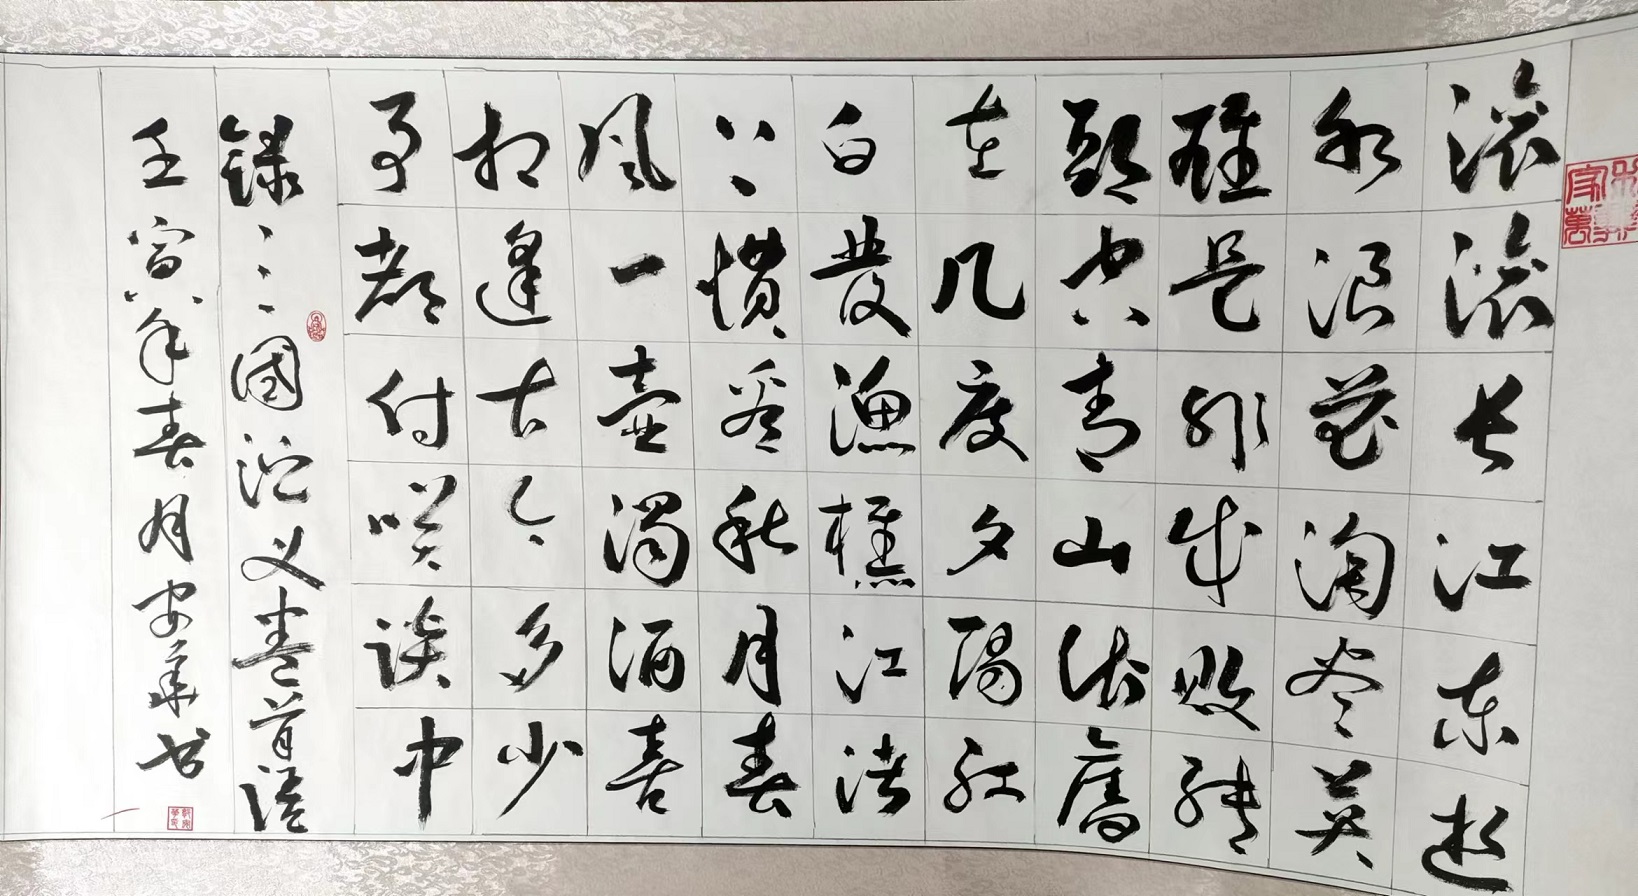 滚滚长江东逝
水浪花淘尽英
雄是非成败转
頭空青山依舊
在几度夕陽红
白發漁樵江渚
上惯看秋月春
風一壶濁酒喜
相逢古今多少
事都付笑谈中
錄三國演义卷首语
壬寅年春月安華书